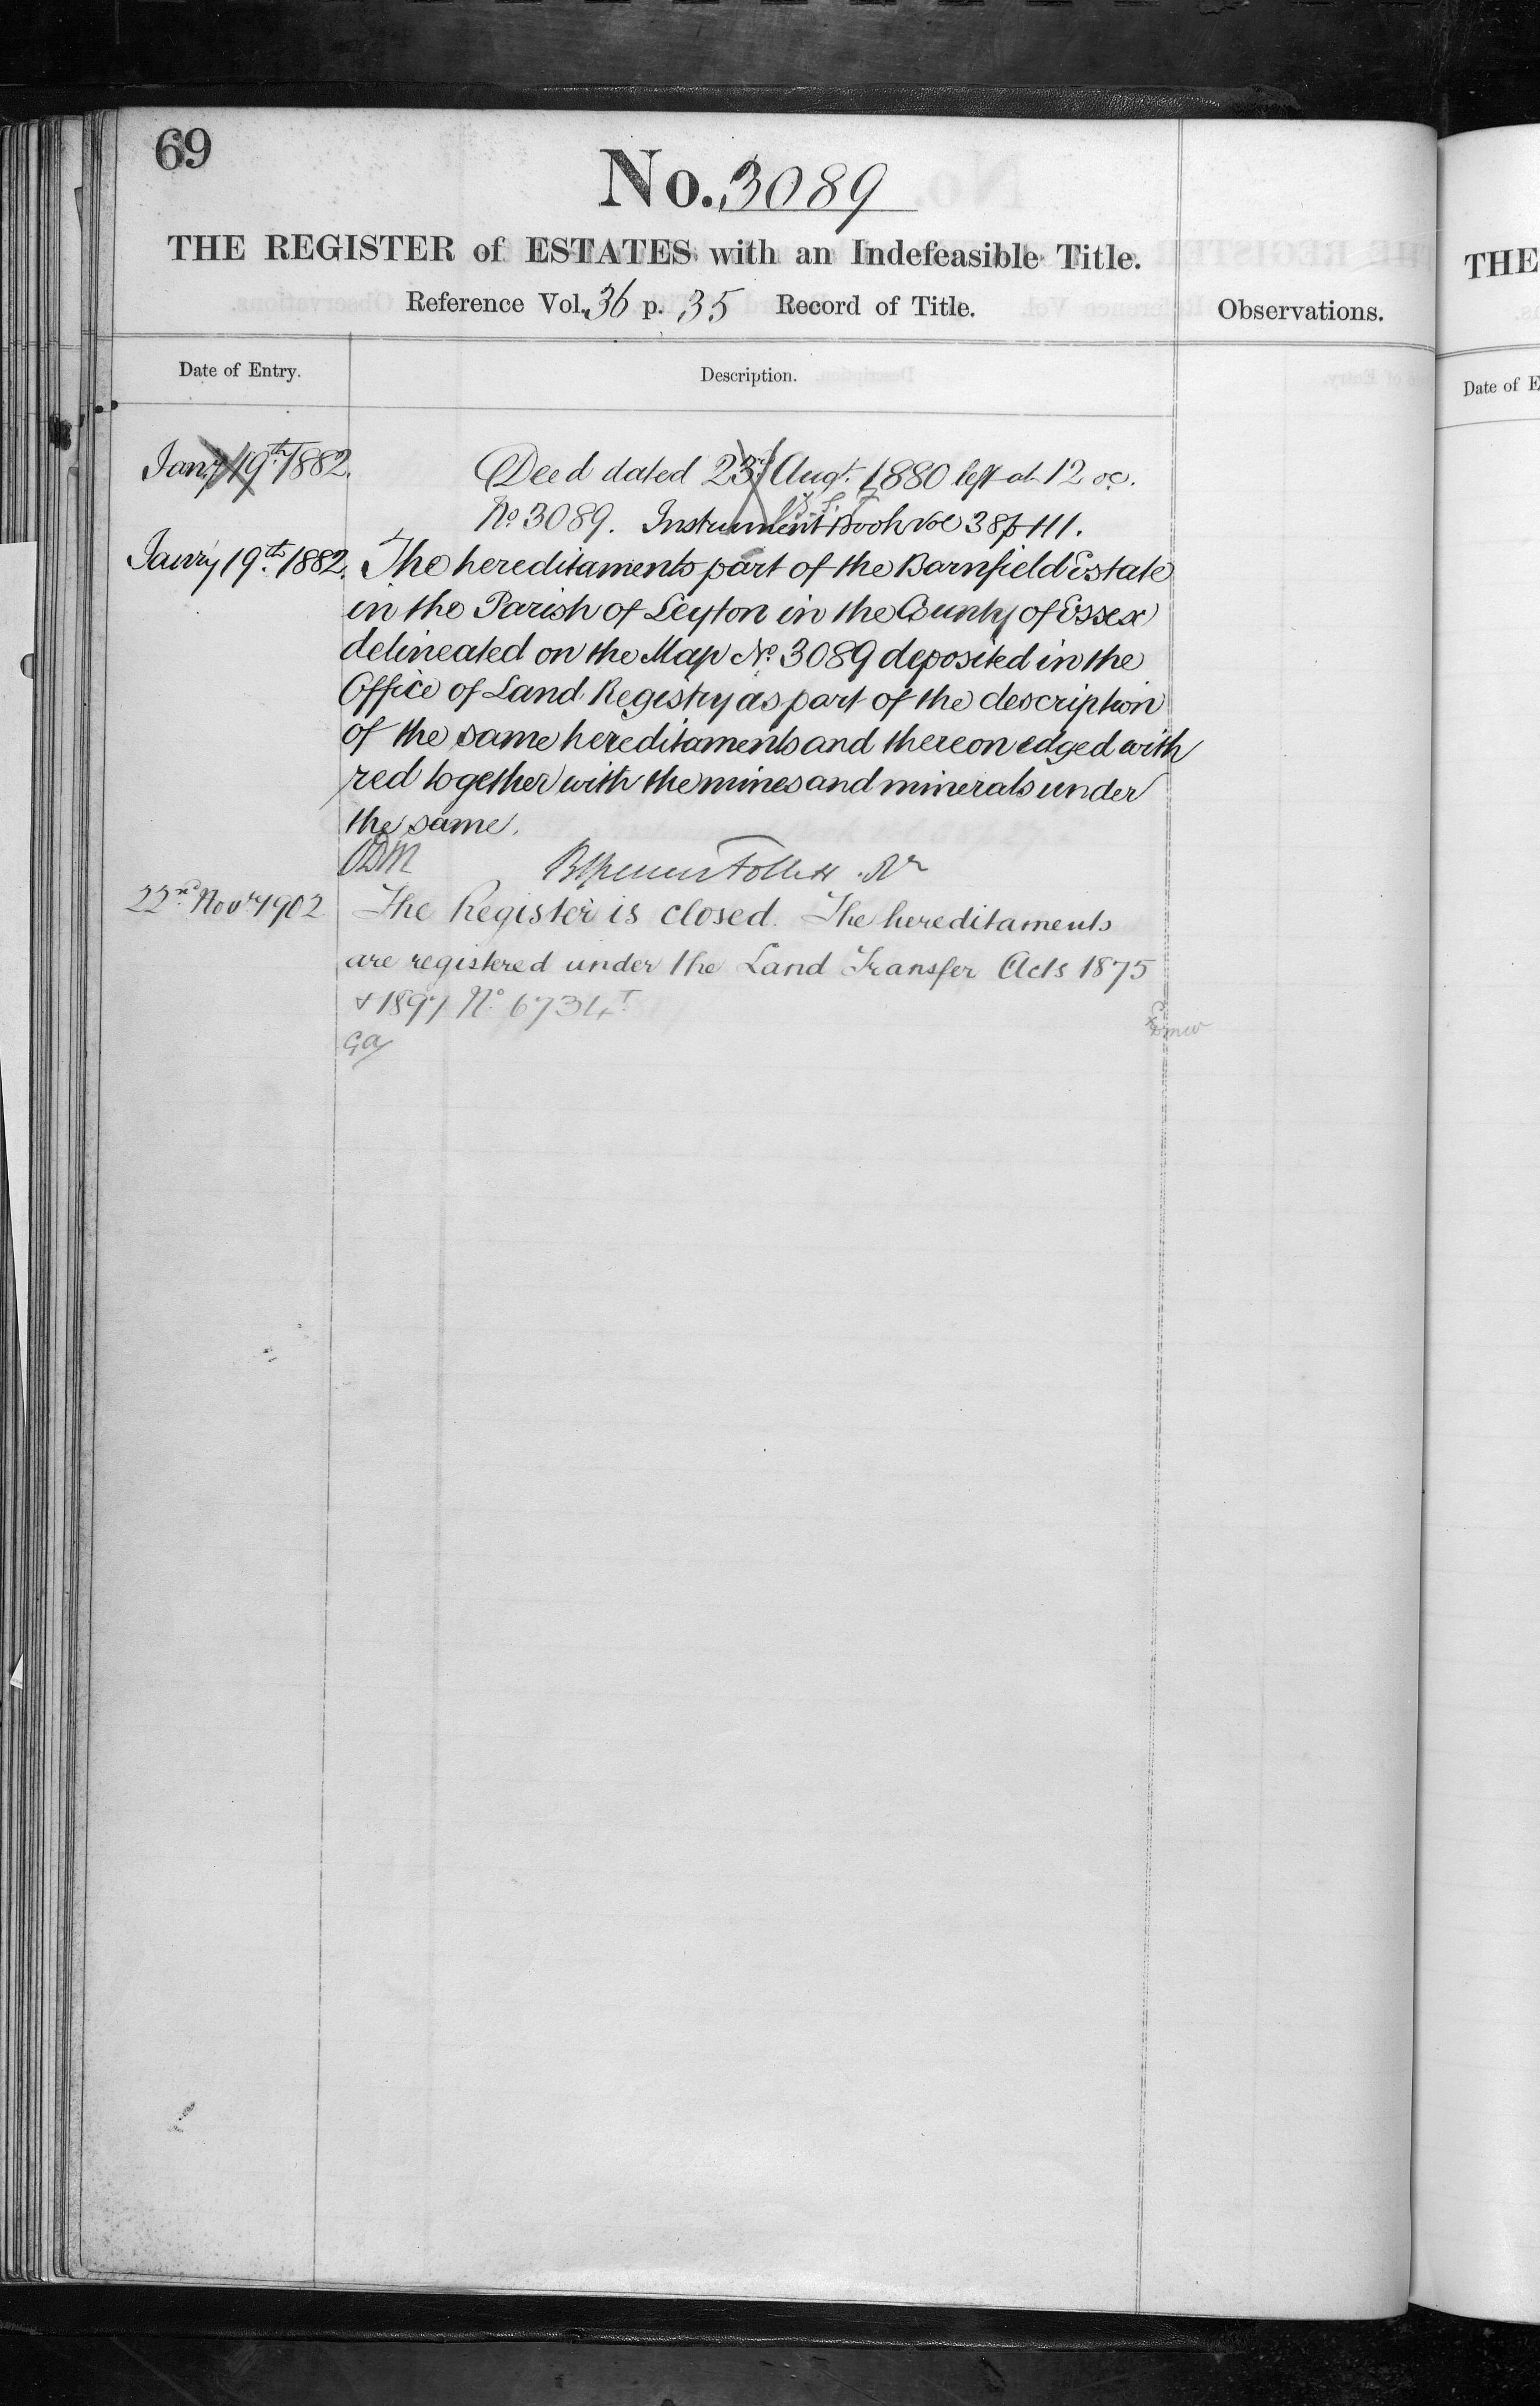 69
No. 3089
THE REGISTER of ESTATES with an Indefeasible Title.
Reference Vol. 36 p. 35 Record of Title.
Observations.
Date of Entry.
Description.
Jany 19th 1882.
Deed dated 23rd Augt. 1880 left at 12 oc.
No 3089. Instrument Book Vol 38 p 111.
Janry 19th 1882.
The hereditaments part of the Barnfield Estate
in the Parish of Leyton in the County of Essex
delineated on the Map No. 3089 deposited in the
Office of Land Registry as part of the description
of the same hereditaments and thereon edged with
red together with the mines and minerals under
the same.
22nd Novr 1902
The Register is closed. The hereditaments
are registered under the Land Transfer Acts 1875
& 1897 No 6734
THE
Date of E